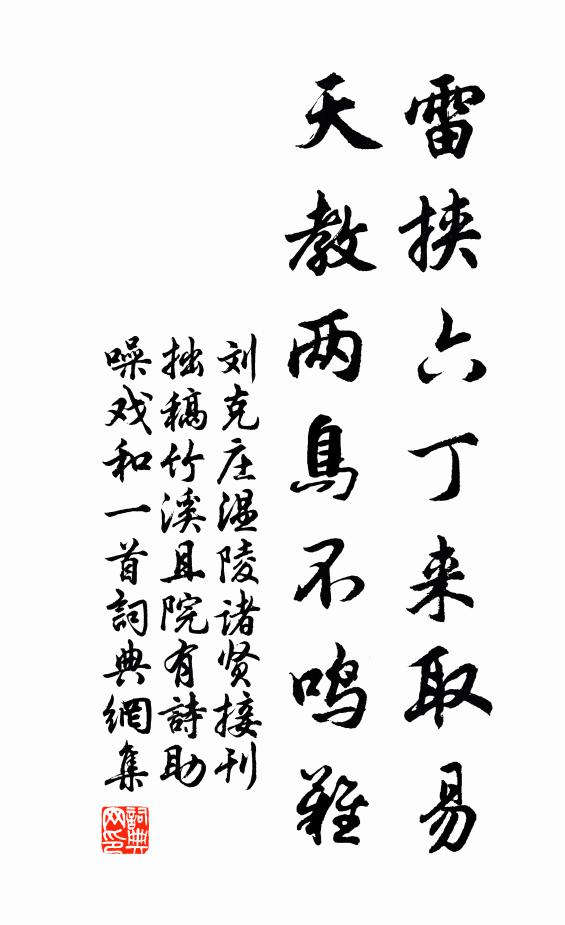 雷挾六丁来取易
天教两鳥不鸣難
刘克庄温陵诸贤接刊
拙稿竹溪且院有詩助
噪戏和一首詞典網集
詞典
网印